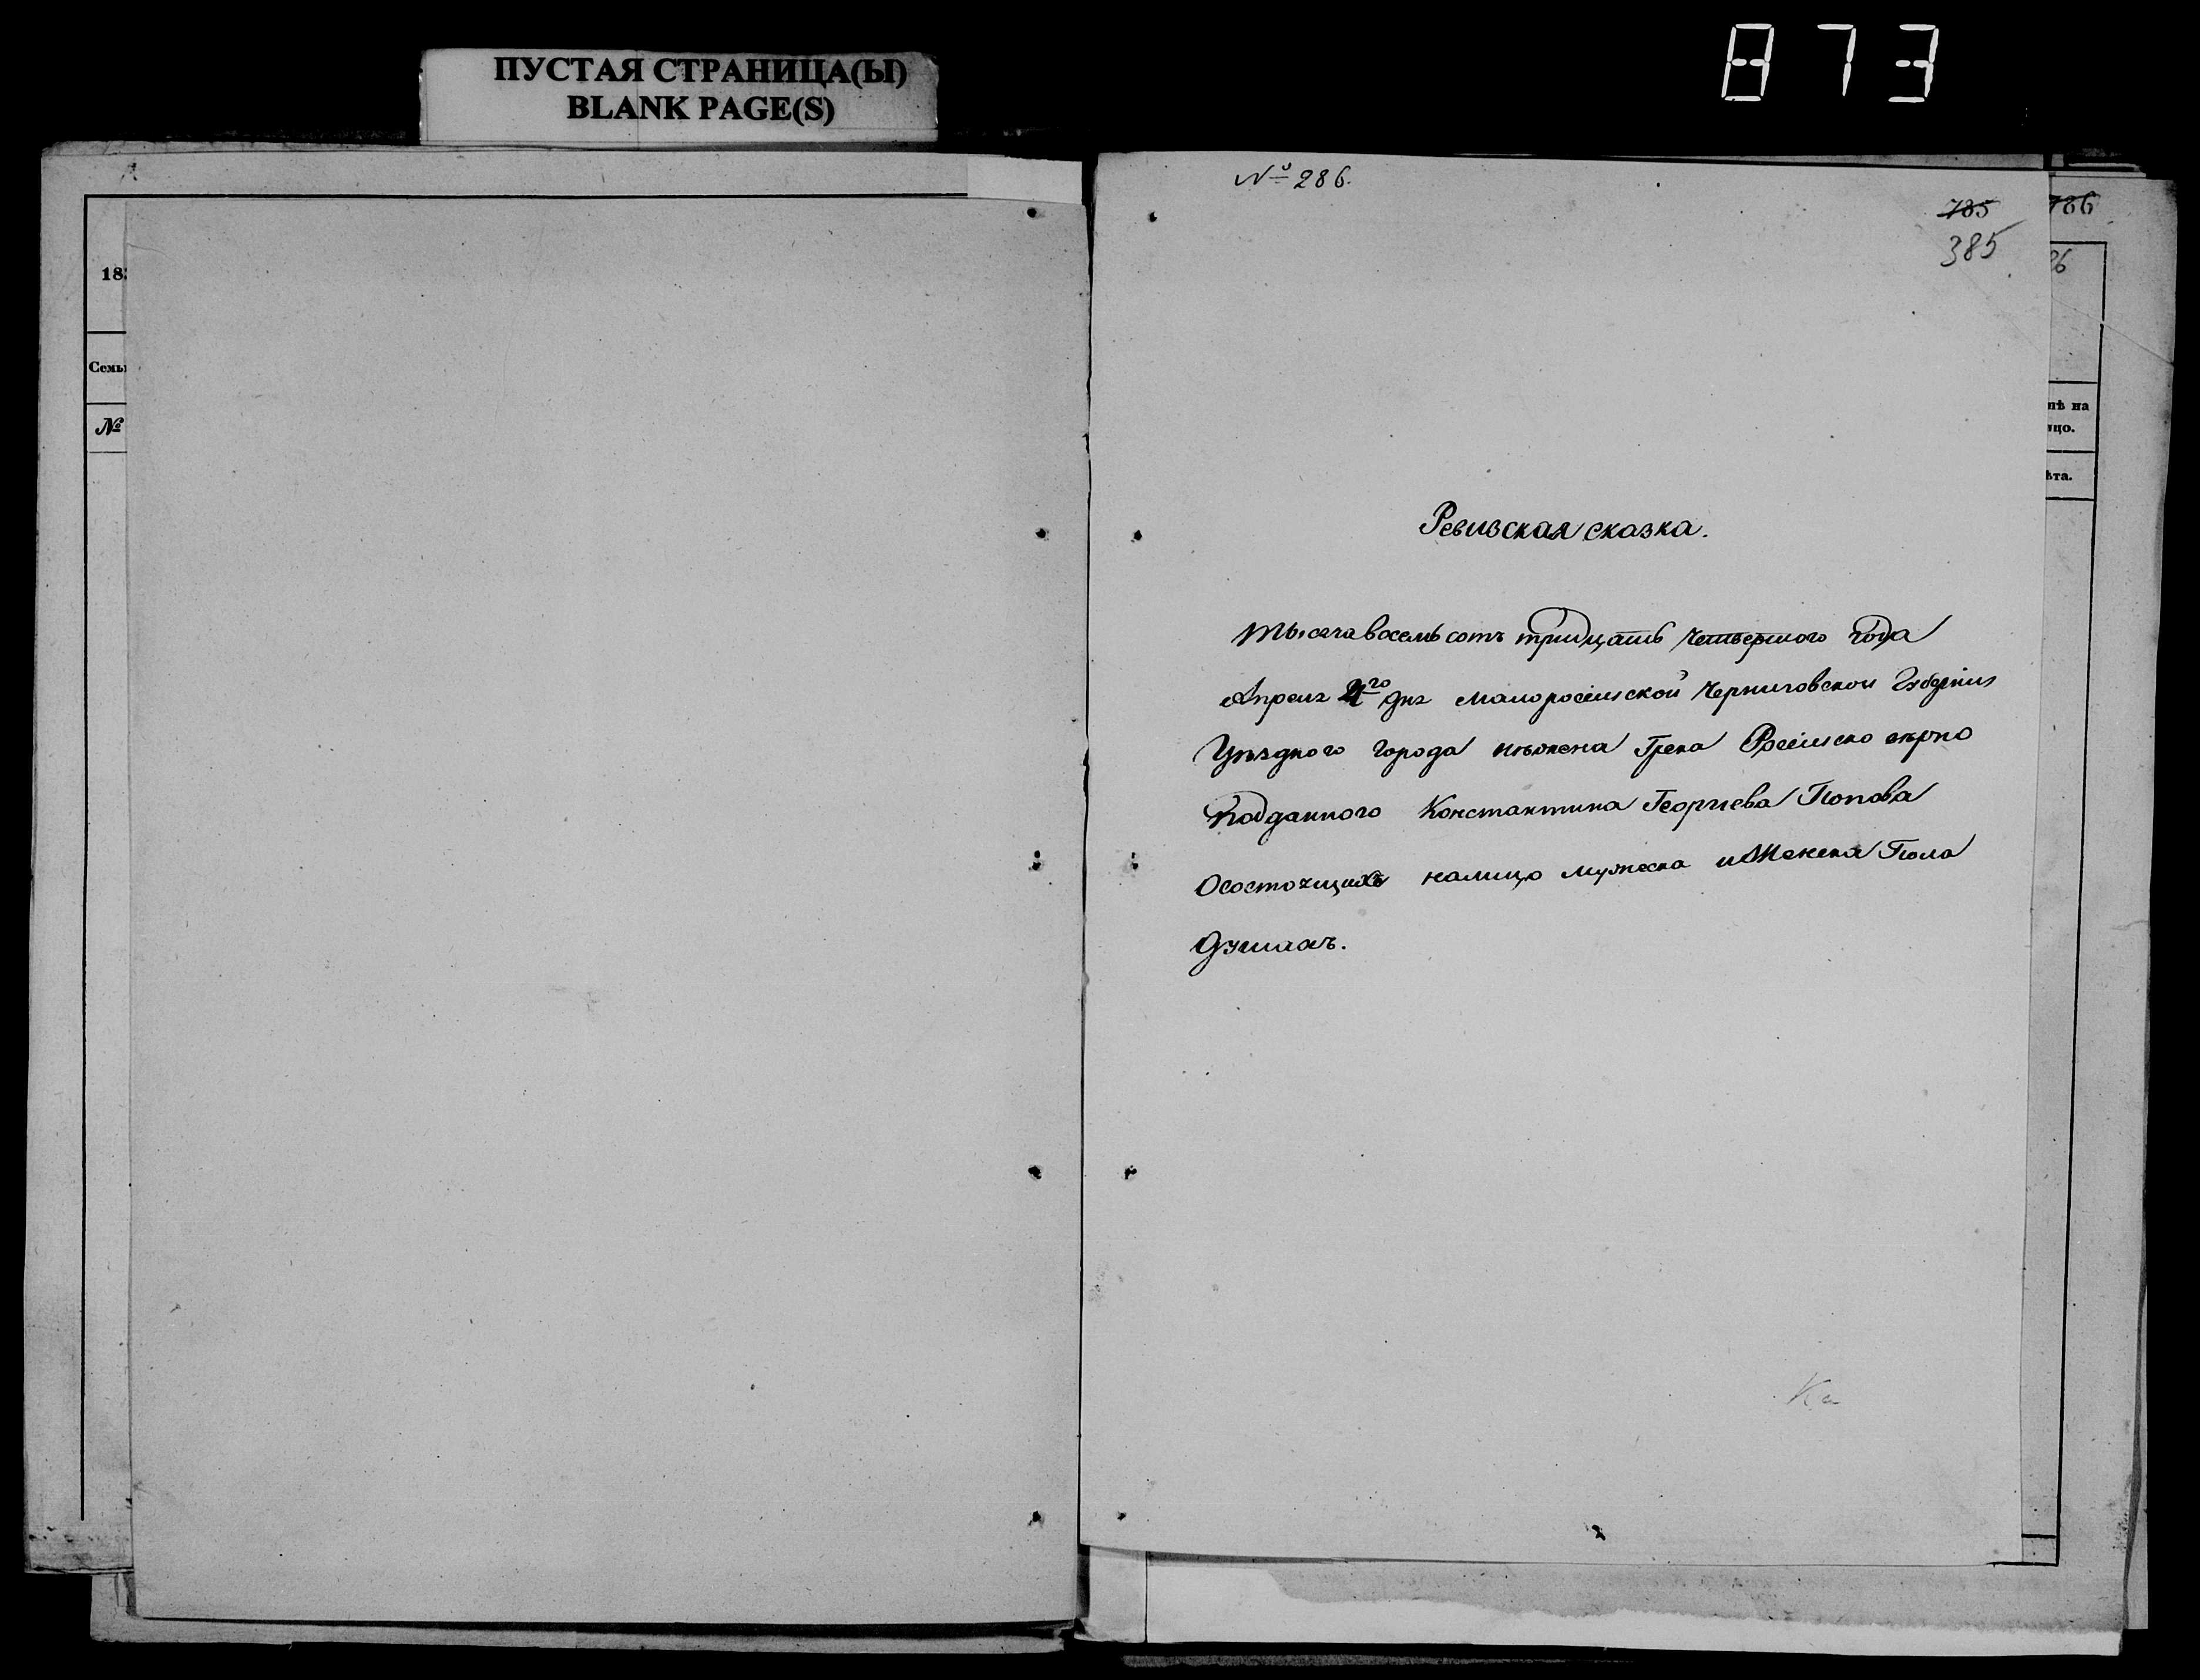 873
ПУСТАЯ СТРАНИЦА(Ы)
BLANK PAGE(S)
18
Семы
№
№ 286.
785
385
786
26
лѣ на
ицо.
ѣта.
Ревизская сказка.
тысяча восемь сотъ тридцать четвертого года
Апреля 4го дня малоросійской Черниговской Губернии
Уѣздного города нѣжена Грека Російско
подданного Константина Георгиева Попова
Осостоящихъ налицо мужеска и Женска Пола
душахъ.
Ка